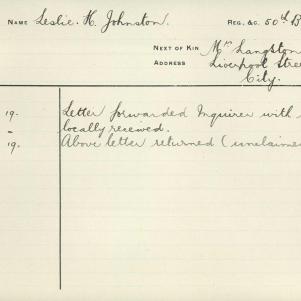 NAME Leslie. H. Johnston. REG. &C. 50th B
NEXT OF KIN Mrs Langston
ADDRESS Liverpool Stree
City.
19. Letter forwarded Inquirer with
- locally received.
19. Above letter returned (unclaime